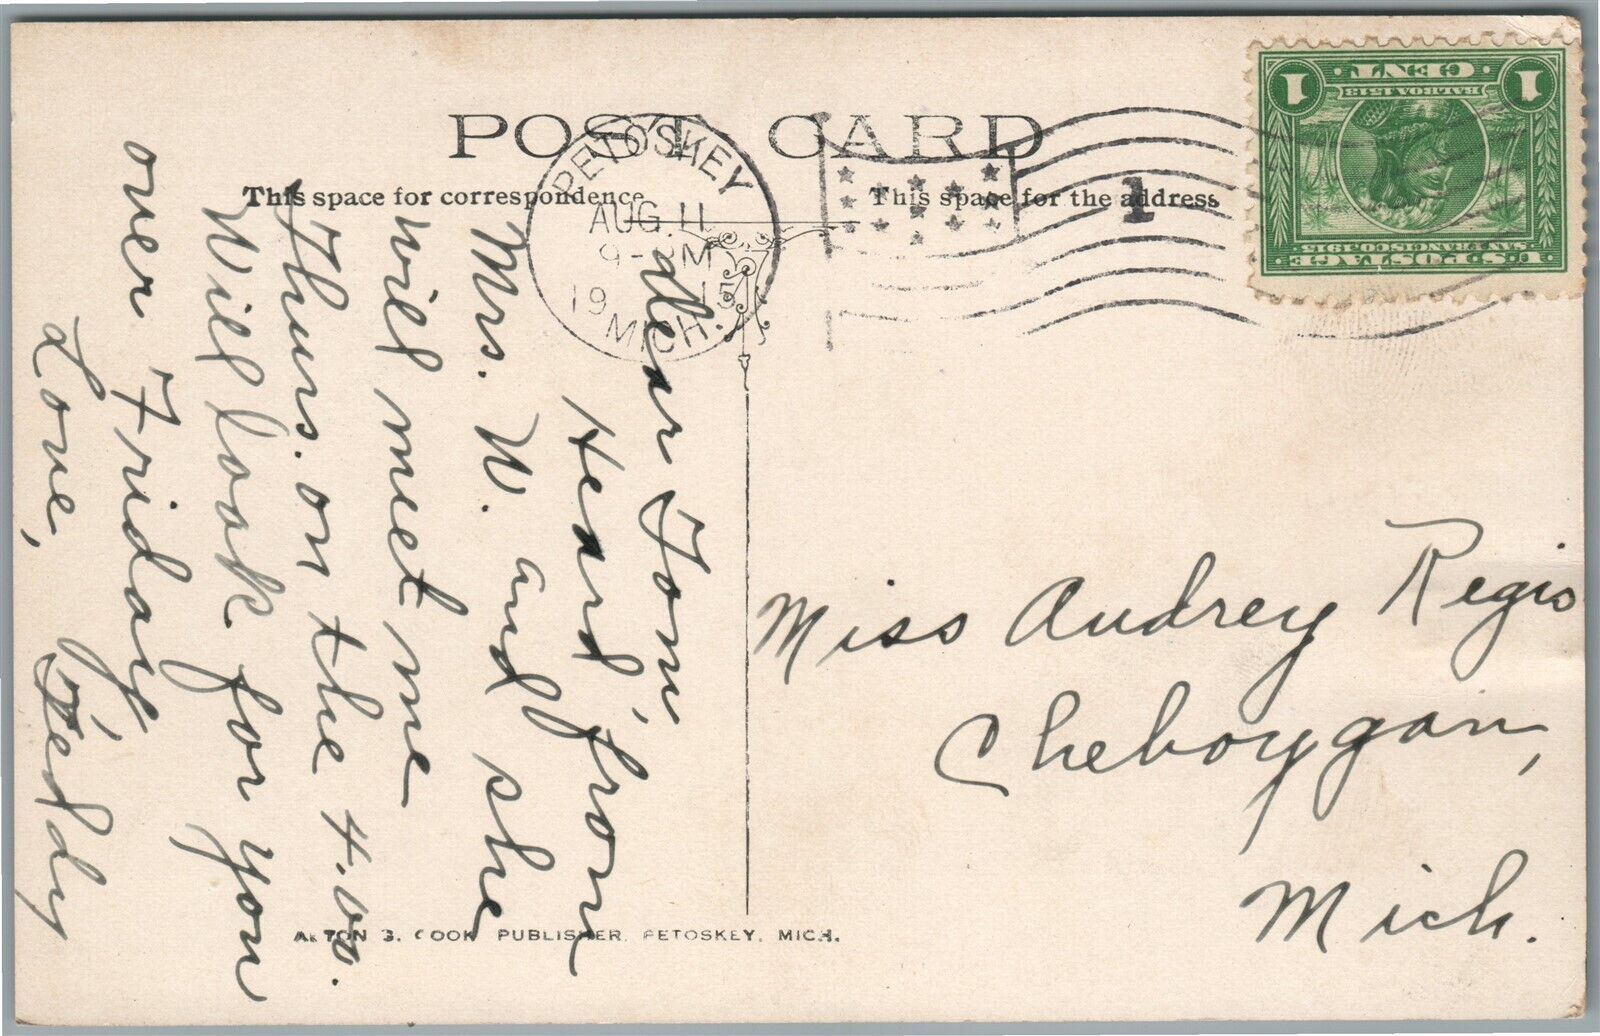 POST CARD
This space for correspondence
This space for the address
PETOSKEY
AUG. 11
9- M
1915
MICH.
1
U.S. POSTAGE
SAN FRANCISCO 1915
BALBOA 1513
1 CENT 1
dear Tom,
Heard from
Mrs. W. and she
will meet me
Thurs. on the 4.00.
Will look for you
over Friday
Love,
Teddy
Miss Audrey Regis
Cheboygan,
Mich.
COOK PUBLISHER, PETOSKEY, MICH.